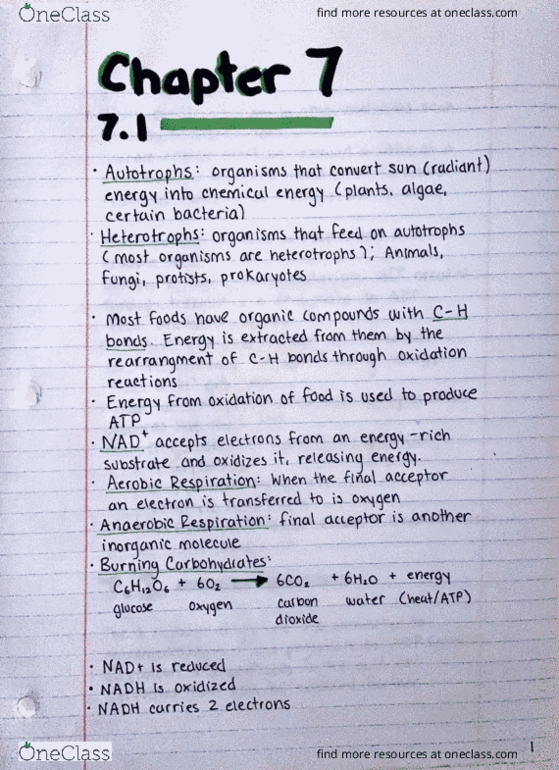 OneClass
find more resources at oneclass.com
Chapter 7
7.1
· Autotrophs: organisms that convert sun (radiant)
energy into chemical energy (plants, algae,
certain bacteria)
· Heterotrophs: organisms that feed on autotrophs
(most organisms are heterotrophs); Animals,
fungi, protists, prokaryotes
· Most foods have organic compounds with C-H
bonds. Energy is extracted from them by the
rearrangment of C-H bonds through oxidation
reactions
· Energy from oxidation of food is used to produce
ATP
· NAD⁺ accepts electrons from an energy-rich
substrate and oxidizes it, releasing energy.
· Aerobic Respiration: when the final acceptor
an electron is transferred to is oxygen
· Anaerobic Respiration: final acceptor is another
inorganic molecule
· Burning Carbohydrates:
C₆H₁₂O₆ + 6O₂ → 6CO₂ + 6H₂O + energy
glucose oxygen carbon water (heat/ATP)
dioxide
· NAD+ is reduced
· NADH is oxidized
· NADH carries 2 electrons
1
OneClass
find more resources at oneclass.com